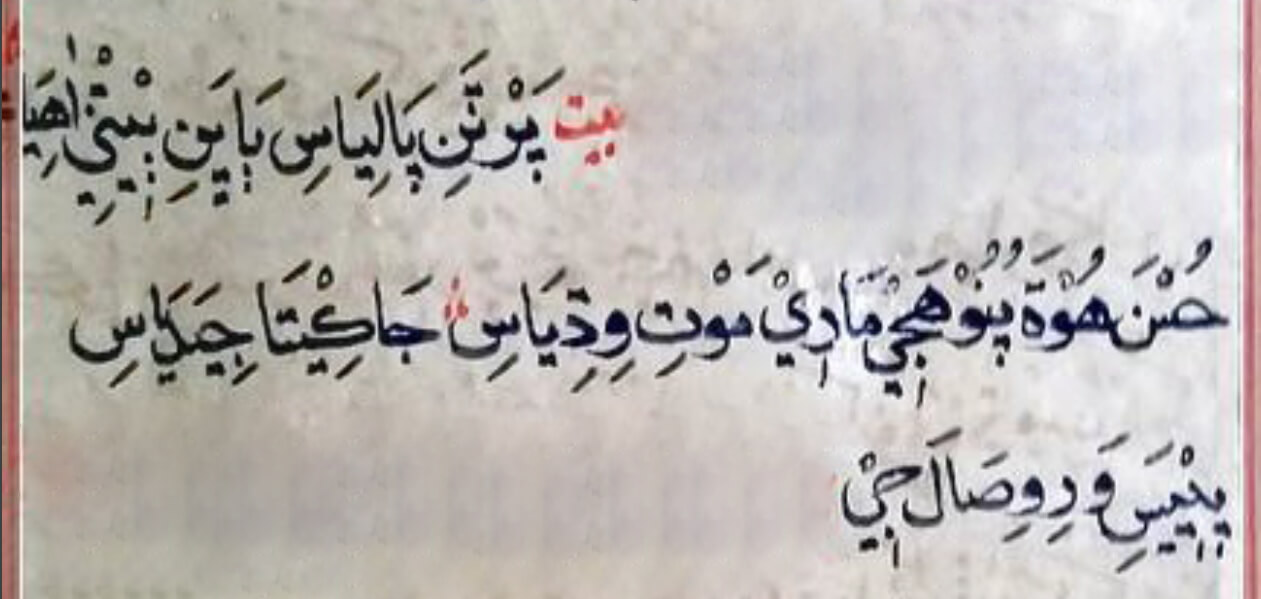 بيت پَرْتَنِ پَالِيَاسِ بَايَنِ بِيْتِيْ اٰهِيَا
حُسْنَ هُوْةَ پُنُوْهَجِيْ مَادِيْ مَوْتِ وِڌِيَاسِ جَاكِيْتَا جِيَدَيَاسِ
پِيْئِسَ وَدِ وِصَالَ جِيْ